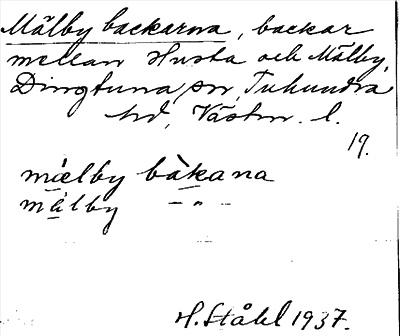 Mälby backarna, backar
mellan Husta och Mälby,
Dingtuna sn, Tuhundra
hd, Västm. l.
19.
mìelby bàkana
mälby — „ —
H. Ståhl 1937.